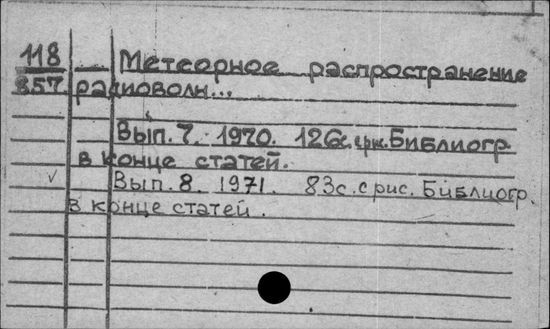 118 Метеорное распространение
857 радиоволн...
Вып. 7. 1970. 126с. с рис. Библиогр.
в конце статей.
Вып. 8. 1971. 83с. с рис. Библиогр.
в конце статей.